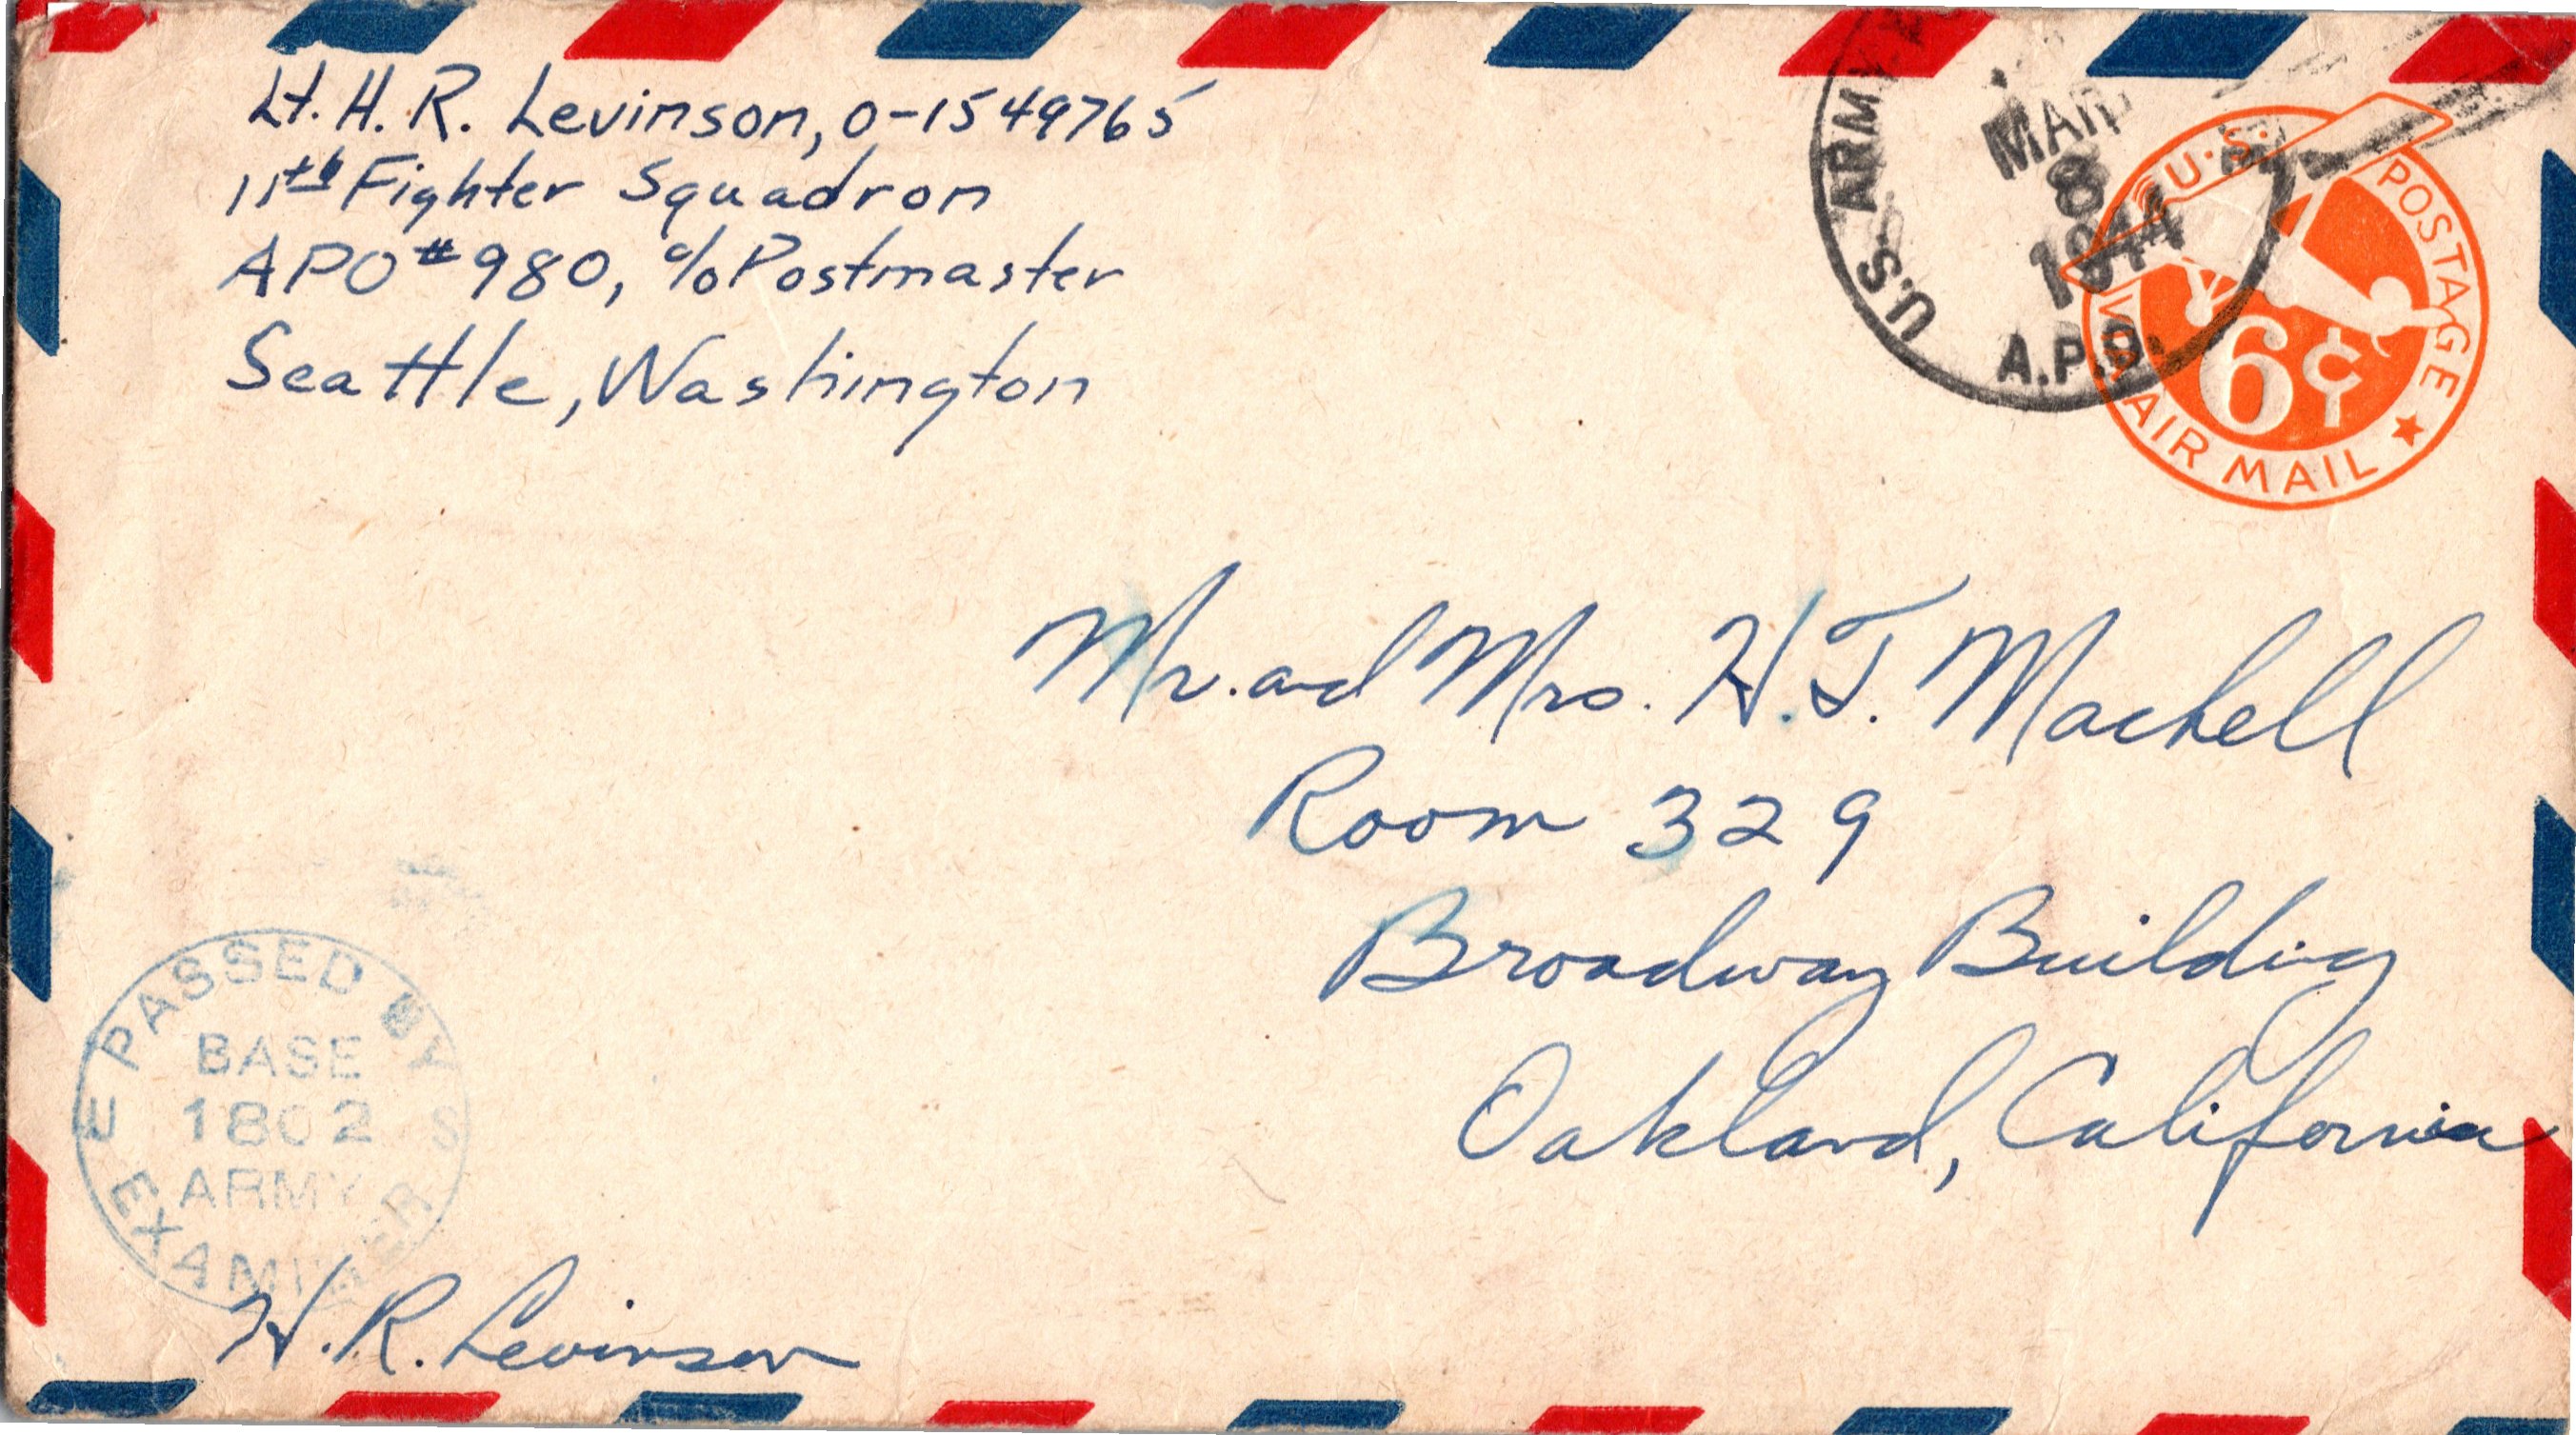 Lt. H. R. Levinson, O-1549765
11th Fighter Squadron
APO #980, c/o Postmaster
Seattle, Washington
U.S. ARMY
MAR
8
1944
A.P.O.
U.S. POSTAGE
6¢
VIA AIR MAIL
Mr. and Mrs. H. J. Machell
Room 329
Broadway Building
Oakland, California
PASSED BY
BASE
1802
ARMY
EXAMINER
H. R. Levinson